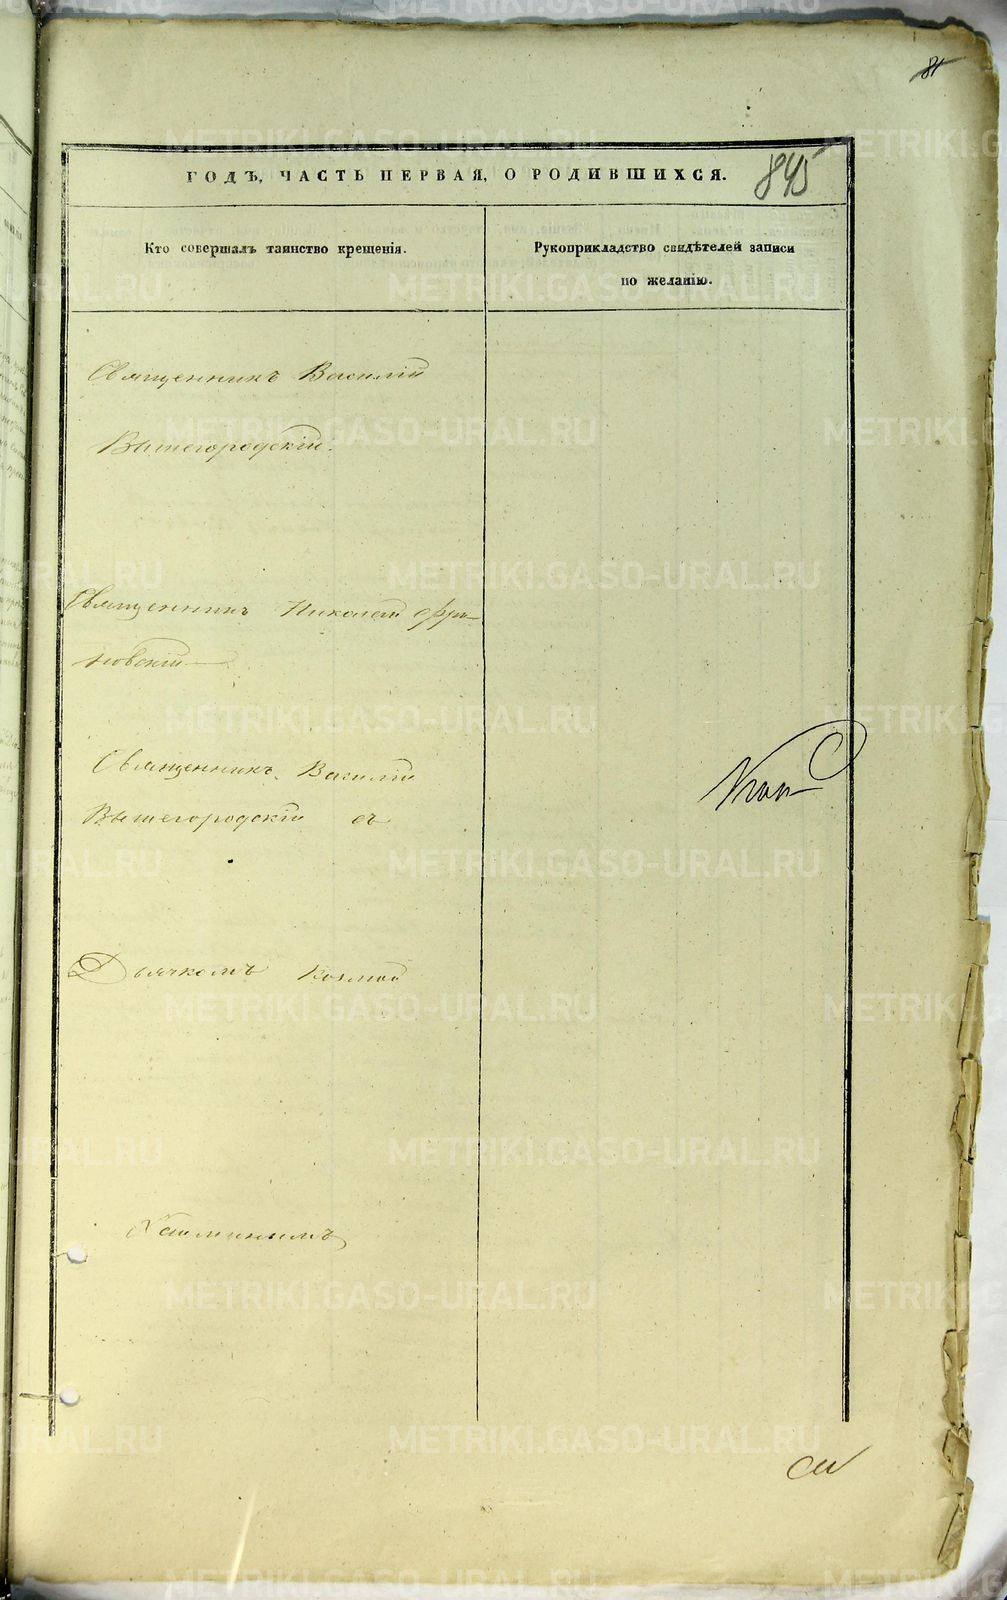 81
ГОДЪ, ЧАСТЬ ПЕРВАЯ, О РОДИВШИХСЯ.
845
Кто совершалъ таинство крещенія.
Рукоприкладство свидѣтелей записи
по желанію.
Священникъ Василій
Вышегородскій.
Священникъ Николай
новскій
Священникъ Василій
Вышегородскій съ
Дьячкомъ Козмой
METRIKI.GASO-URAL.RU